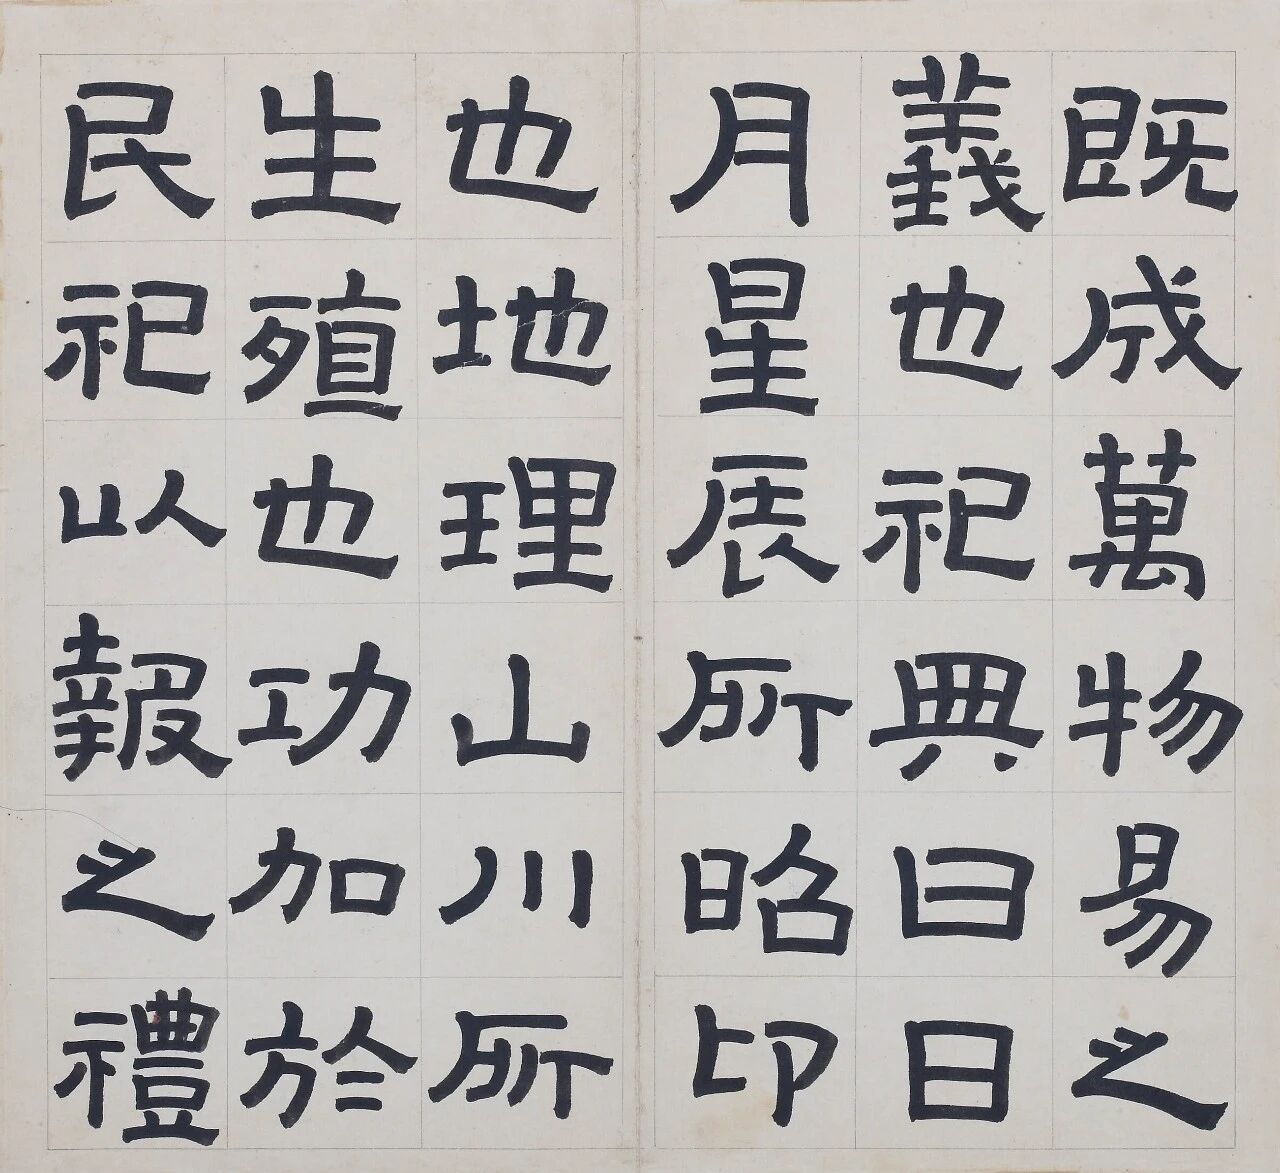 既成萬物易之
義也祀典曰日
月星辰所昭卬
也地理山川所
生殖也功加於
民祀以報之禮